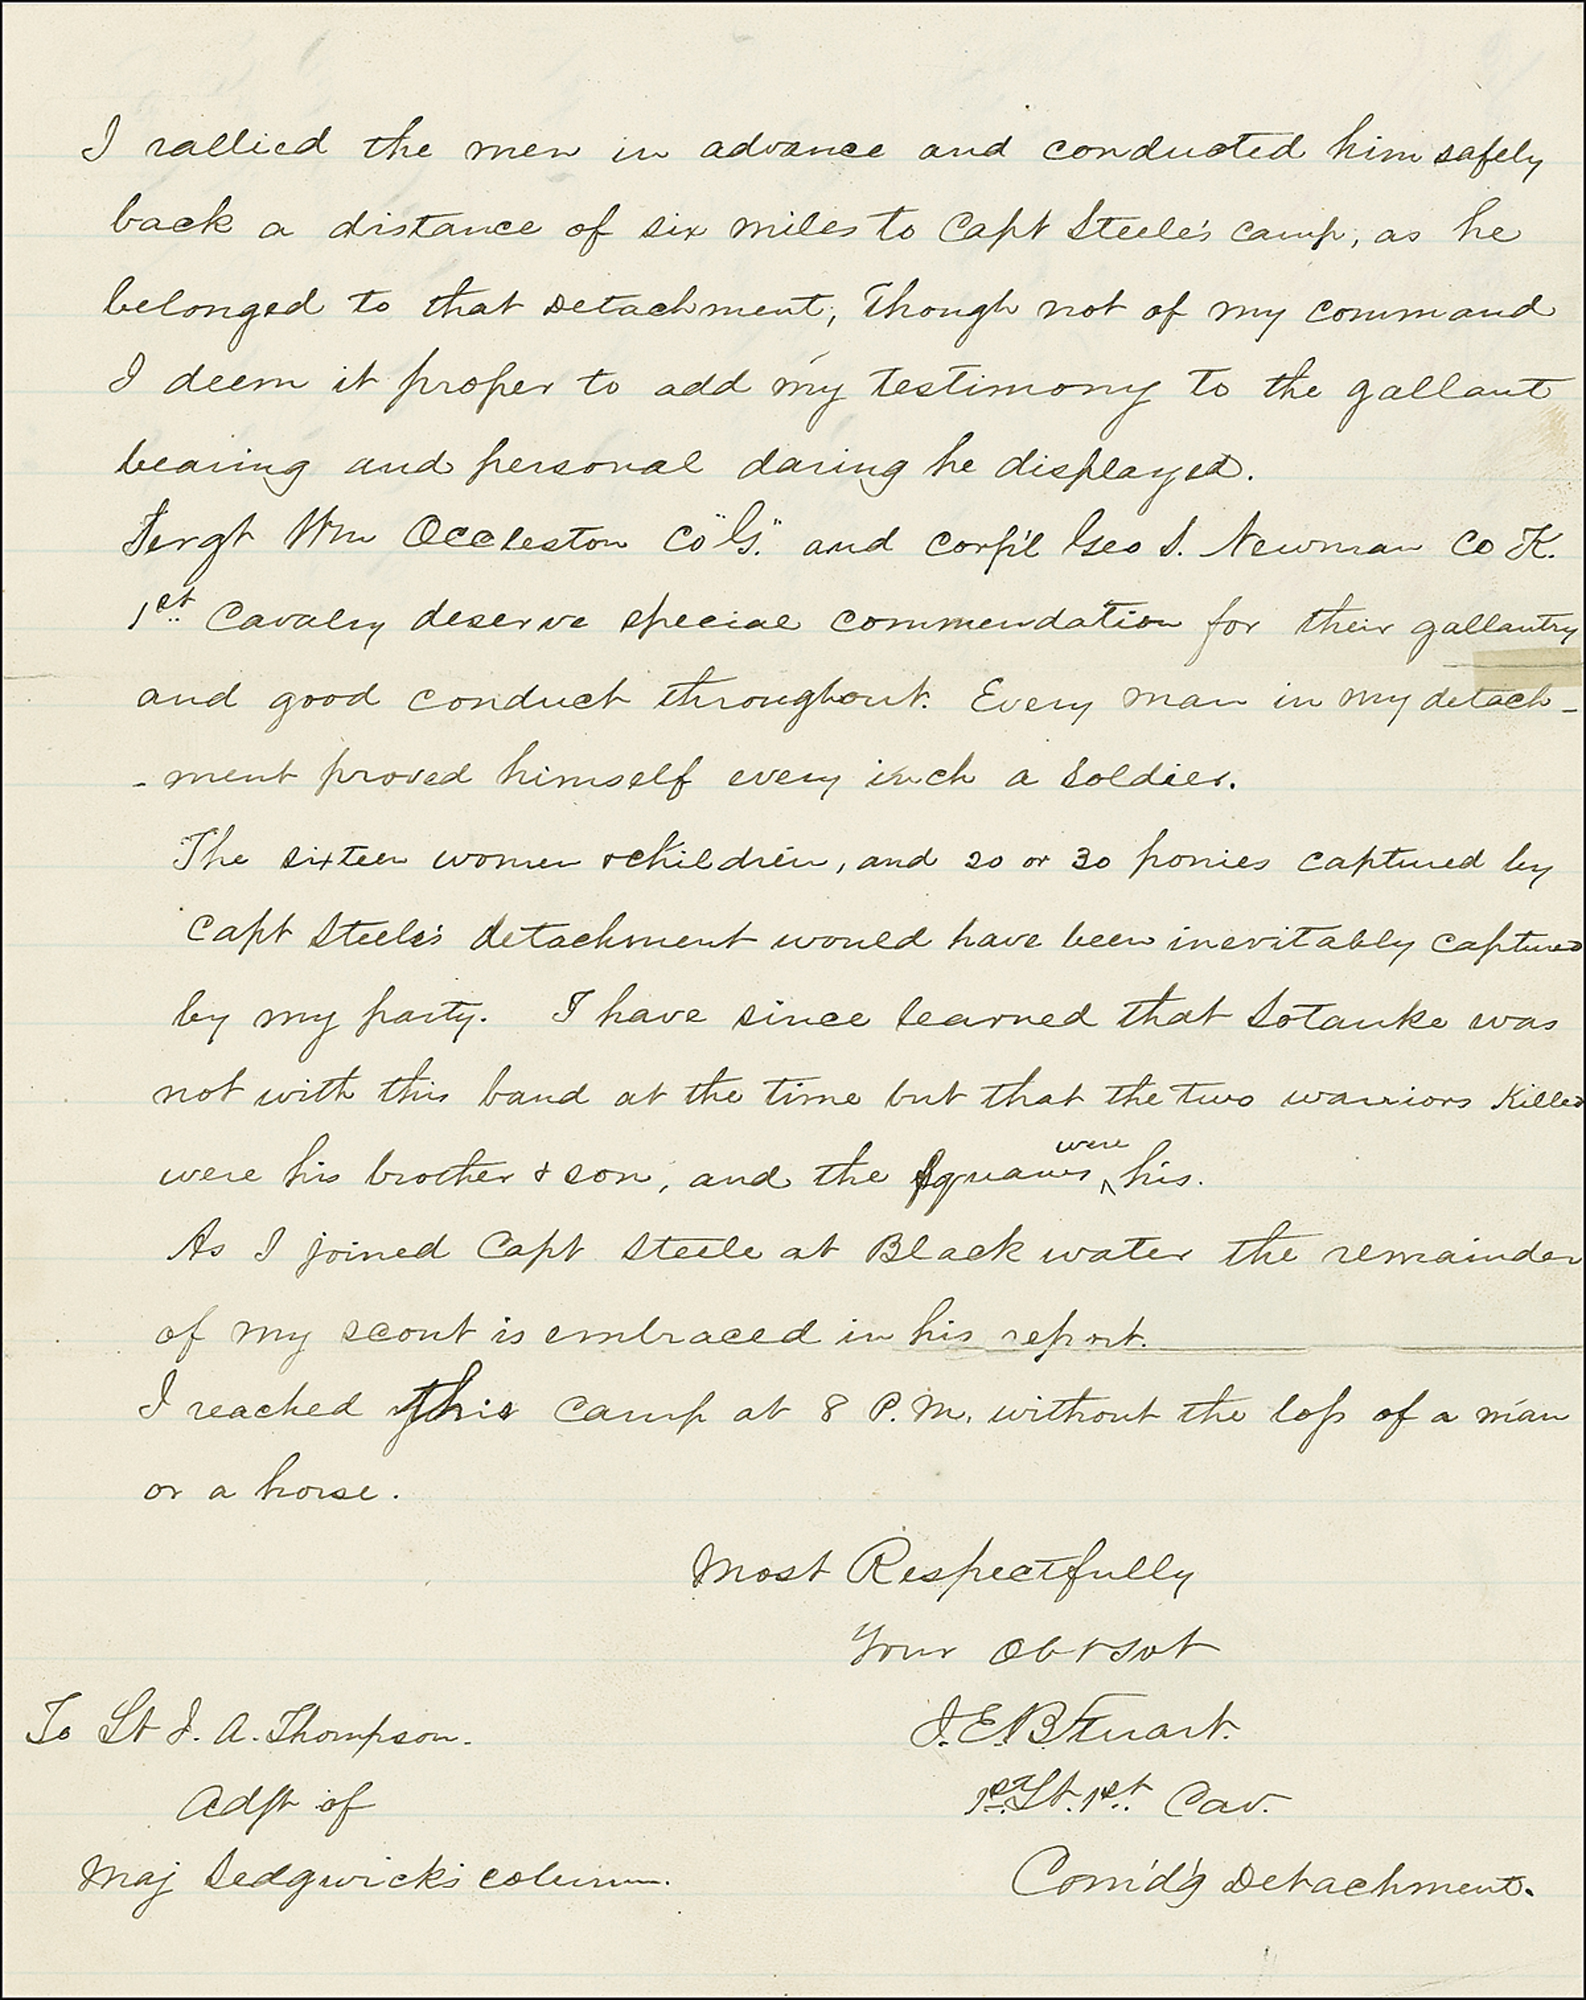 I rallied the men in advance and conducted him safely
back a distance of six miles to Capt Steele's camp, as he
belonged to that Detachment; Though not of my command
I deem it proper to add my testimony to the gallant
bearing and personal daring he displayed.
Sergt Wm Occleston Co "G." and Corp'l Geo S. Newman Co K.
1st Cavalry deserve special commendation for their gallantry
and good conduct throughout. Every man in my detach-
-ment proved himself every inch a Soldier.
The sixteen women & children, and 20 or 30 ponies captured by
Capt Steele's detachment would have been inevitably captured
by my party. I have since learned that Sotanke was
not with this band at the time but that the two warriors killed
were his brother & son, and the squaws were his.
As I joined Capt Steele at Black water the remainder
of my scout is embraced in his report.
I reached this Camp at 8 P.M. without the loss of a man
or a horse.
Most Respectfully
Your Obt Svt
To Lt J. A. Thompson.
J.E.B Stuart.
Adjt of
1st Lt. 1st. Cav.
Maj Sedgwick's column.
Com'd'g Detachment.